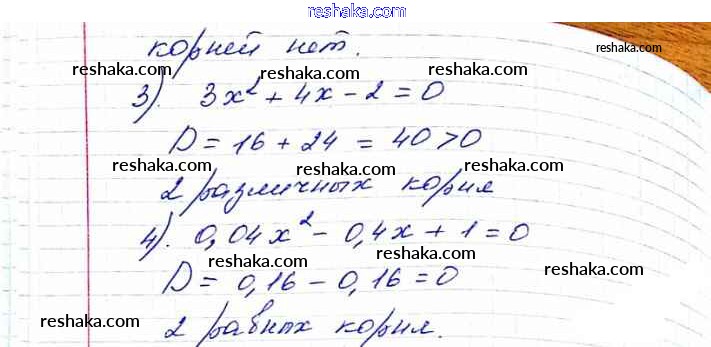 reshaka.com
корней нет.
reshaka.com reshaka.com reshaka.com
3). 3x² + 4x - 2 = 0
reshaka.com
D = 16 + 24 = 40 > 0
reshaka.com reshaka.com reshaka.com
2 различных корня
reshaka.com reshaka.com
4). 0,04x² - 0,4x + 1 = 0
reshaka.com reshaka.com
D = 0,16 - 0,16 = 0
reshaka.com reshaka.com reshaka.com
2 равных корня.